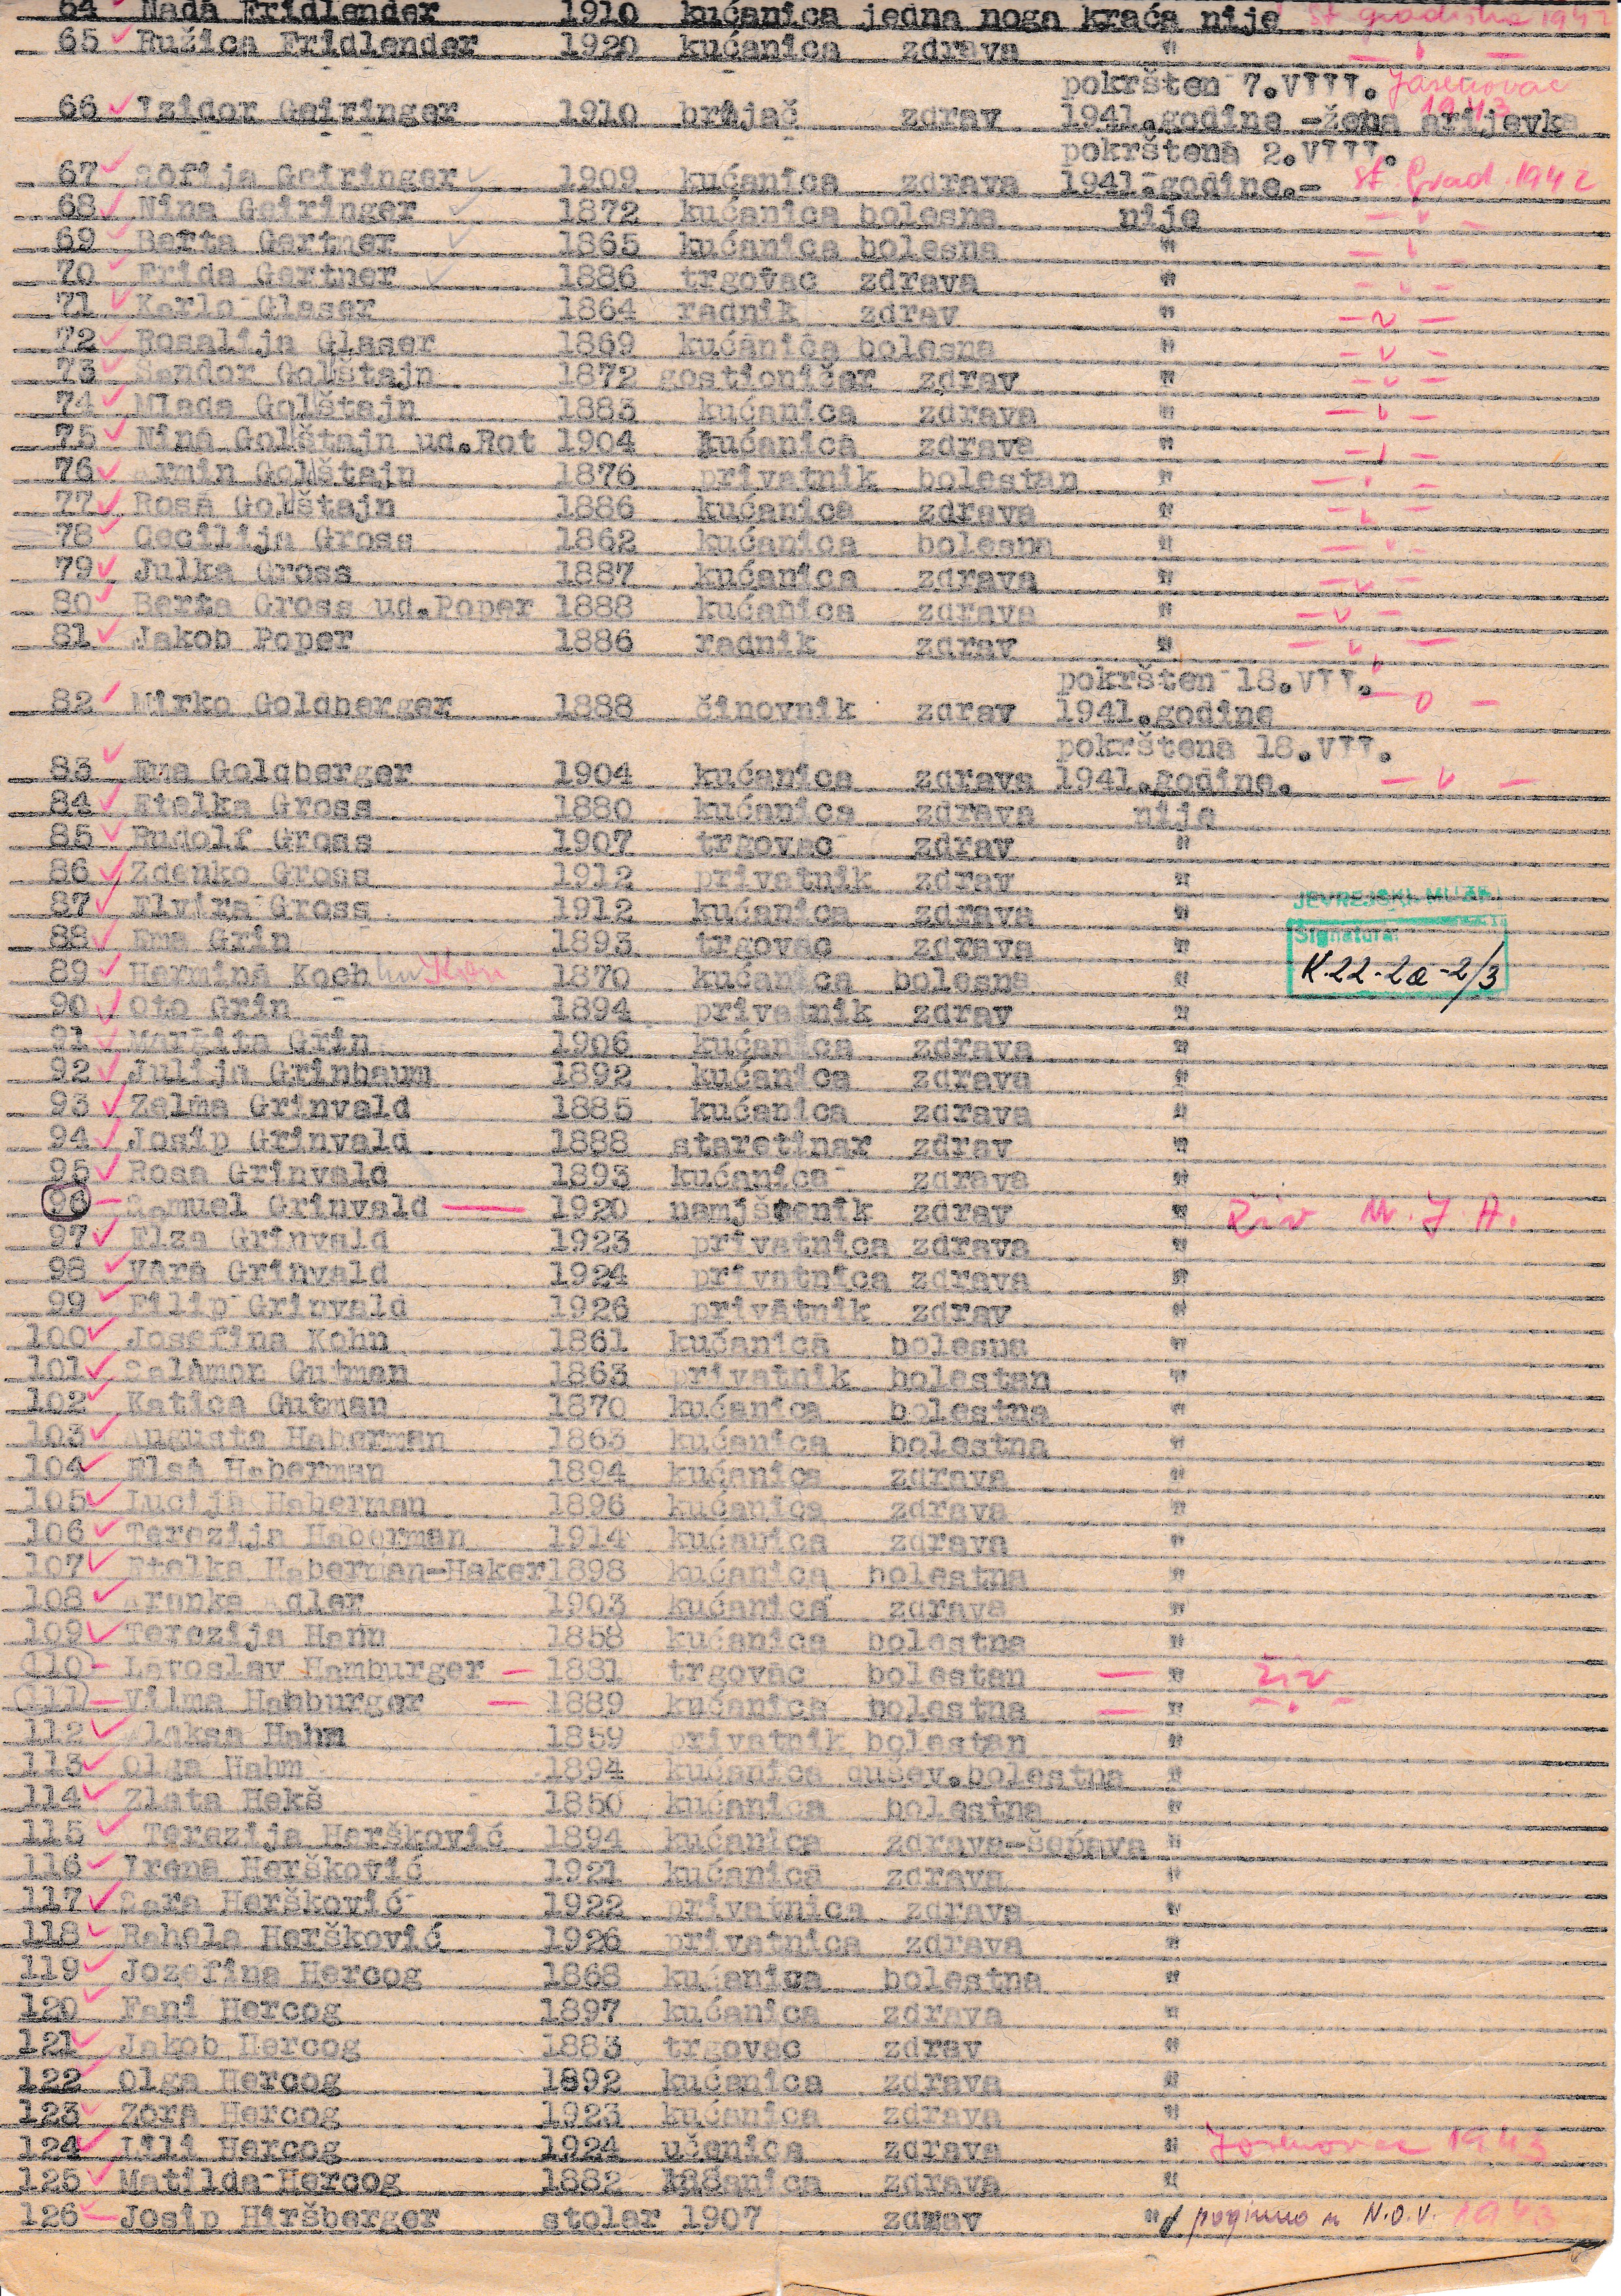 64 Nada Fridlender 1910 kućanica jedna noga kraća nije St gradiška 1942
65 Ružica Fridlender 1920 kućanica zdrava " — " —
pokršten 7.VIII. Jasenovac
66 Izidor Geiringer 1910 brijač zdrav 1941.godine -žena arijevka 1943
pokrštena 2.VIII.
67 Sofija Geiringer 1909 kućanica zdrava 1941.godine.- St. Grad. 1942
68 Nina Geiringer 1872 kućanica bolesna nije — " —
69 Berta Gertner 1865 kućanica bolesna " — " —
70 Frida Gertner 1886 trgovac zdrava " — " —
71 Karlo Glaser 1864 radnik zdrav " — " —
72 Rosalija Glaser 1869 kućanica bolesna " — " —
73 Šandor Golštajn 1872 gostioničar zdrav " — " —
74 Mlada Golštajn 1883 kućanica zdrava " — " —
75 Nina Golštajn ud.Rot 1904 kućanica zdrava " — " —
76 Armin Golštajn 1876 privatnik bolestan " — " —
77 Rosa Golštajn 1886 kućanica zdrava " — " —
78 Cecilija Gross 1862 kućanica bolesna " — " —
79 Julka Gross 1887 kućanica zdrava " — " —
80 Berta Gross ud.Poper 1888 kućanica zdrava " — " —
81 Jakob Poper 1886 radnik zdrav " — " —
pokršten 18.VII.
82 Mirko Goldberger 1888 činovnik zdrav 1941.godine — " —
pokrštena 18.VII.
83 Ema Goldberger 1904 kućanica zdrava 1941.godine. — " —
84 Etelka Gross 1880 kućanica zdrava nije
85 Rudolf Gross 1907 trgovac zdrav "
86 Zdenko Gross 1912 privatnik zdrav "
87 Elvira Gross 1912 kućanica zdrava "
JEVREJSKI MUZEJ
88 Ema Grin 1893 trgovac zdrava "
Signatura:
89 Hermina Koeh 1870 kućanica bolesna "
K.22-2a-2/3
90 Oto Grin 1894 privatnik zdrav "
91 Margita Grin 1906 kućanica zdrava "
92 Julija Grinbaum 1892 kućanica zdrava "
93 Zelma Grinvald 1885 kućanica zdrava "
94 Josip Grinvald 1888 staretinar zdrav "
95 Rosa Grinvald 1893 kućanica zdrava "
96 Samuel Grinvald 1920 namještenik zdrav " Živ M. J. A.
97 Elza Grinvald 1923 privatnica zdrava "
98 Vera Grinvald 1924 privatnica zdrava "
99 Filip Grinvald 1926 privatnik zdrav "
100 Josefina Kohn 1861 kućanica bolesna "
101 Salamon Gutman 1863 privatnik bolestan "
102 Katica Gutman 1870 kućanica bolestna "
103 Augusta Haberman 1863 kućanica bolestna "
104 Elsa Haberman 1894 kućanica zdrava "
105 Lucija Haberman 1896 kućanica zdrava "
106 Terezija Haberman 1914 kućanica zdrava "
107 Etelka Haberman-Haker 1898 kućanica bolestna "
108 Aranka Adler 1903 kućanica zdrava "
109 Terezija Hann 1858 kućanica bolestna "
110 Lavoslav Hamburger 1881 trgovac bolestan — " živ
111 Vilma Hamburger 1889 kućanica bolestna — " — " —
112 Aleksa Hahm 1859 privatnik bolestan "
113 Olga Hahm 1894 kućanica dušev.bolestna "
114 Zlata Hekš 1850 kućanica bolestna "
115 Terezija Heršković 1894 kućanica zdrava-šepava "
116 Irena Heršković 1921 kućanica zdrava "
117 Sara Heršković 1922 privatnica zdrava "
118 Rahela Heršković 1926 privatnica zdrava "
119 Jozefina Hercog 1868 kućanica bolestna "
120 Fani Hercog 1897 kućanica zdrava "
121 Jakob Hercog 1883 trgovac zdrav "
122 Olga Hercog 1892 kućanica zdrava "
123 Zora Hercog 1923 kućanica zdrava "
124 Lili Hercog 1924 učenica zdrava " Jasenovac 1943
125 Matilda Hercog 1882 kućanica zdrava "
126 Josip Hiršberger stolar 1907 zdrav " poginuo u N.O.V. 1943